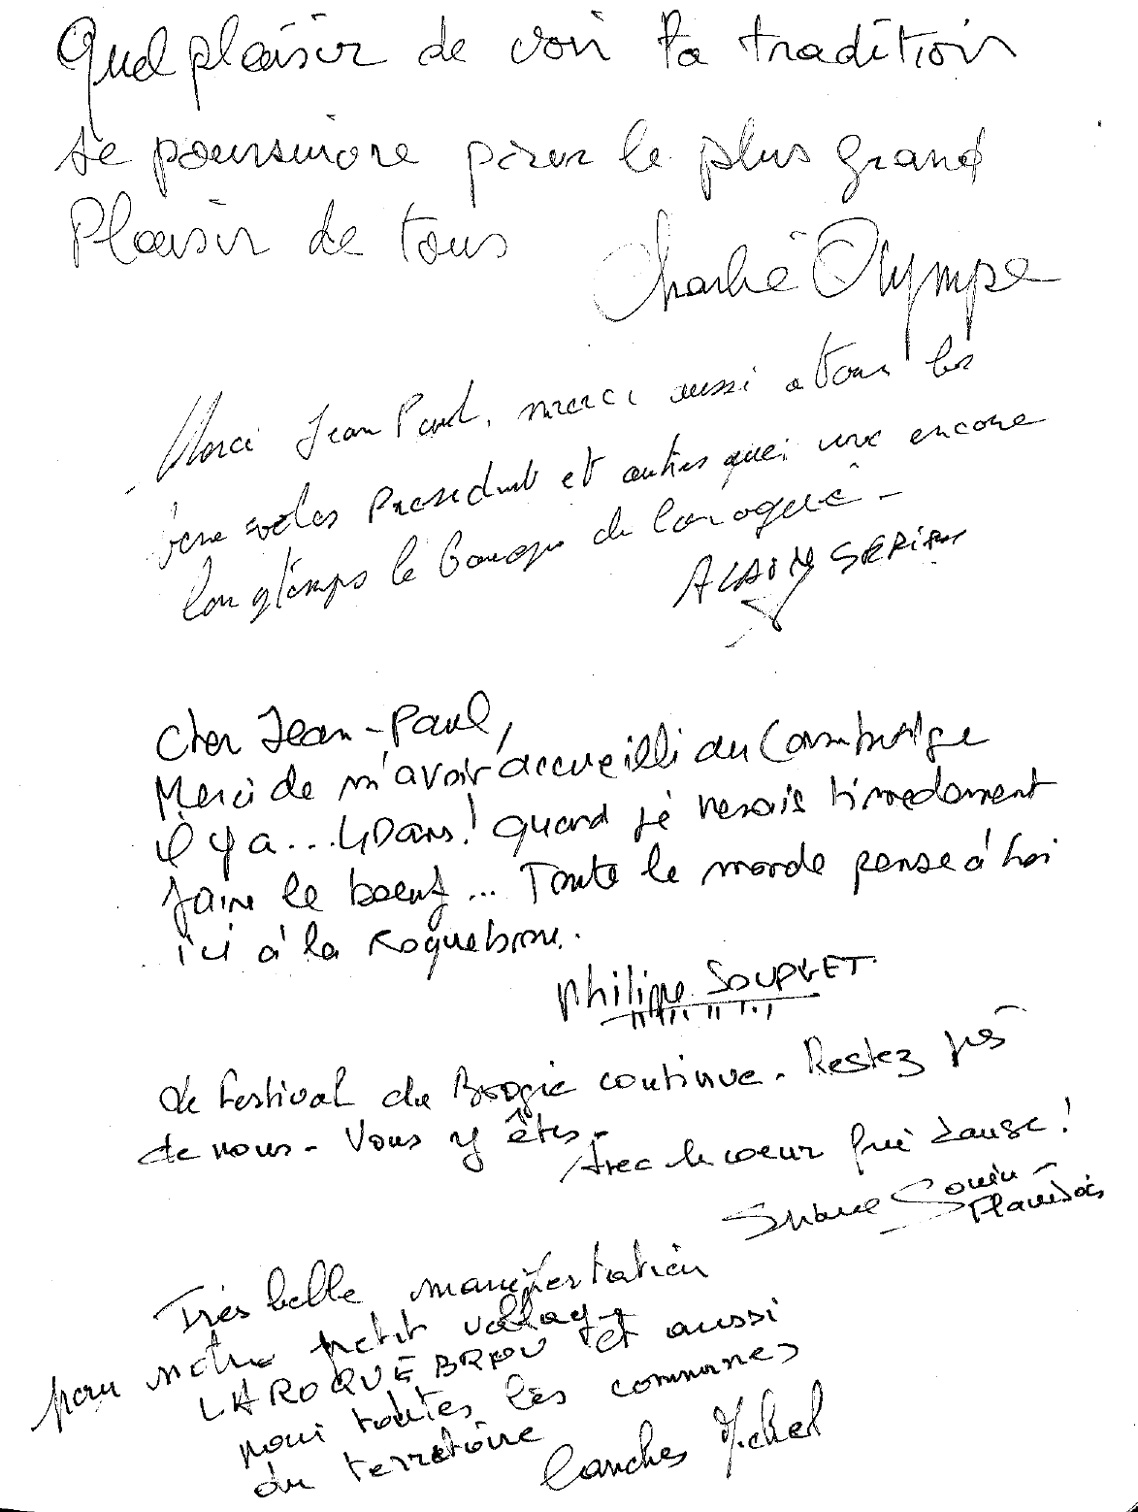 Quel plaisir de voir ta tradition
se poursuivre pour le plus grand
Plaisir de tous
Charlie Olympe
Merci Jean Paul, merci aussi a tous les
benevoles President et autres que vive encore
longtemps le boogie de Laroque -
ALAIN
Cher Jean-Paul,
Merci de m'avoir accueilli au Cambridge
il y a... 40 ans! quand je venais timidement
faire le boeuf... Toute le monde pense à toi
ici à la Roquebrou.
Philippe SOUPLET.
Le Festival du Boogie continue. Restez près
de nous. Vous y êtes.
Avec le coeur qui danse!
Très belle manifestation
pour notre petit village
LAROQUEBROU et aussi
pour toutes les communes
du territoire
Canches Michel